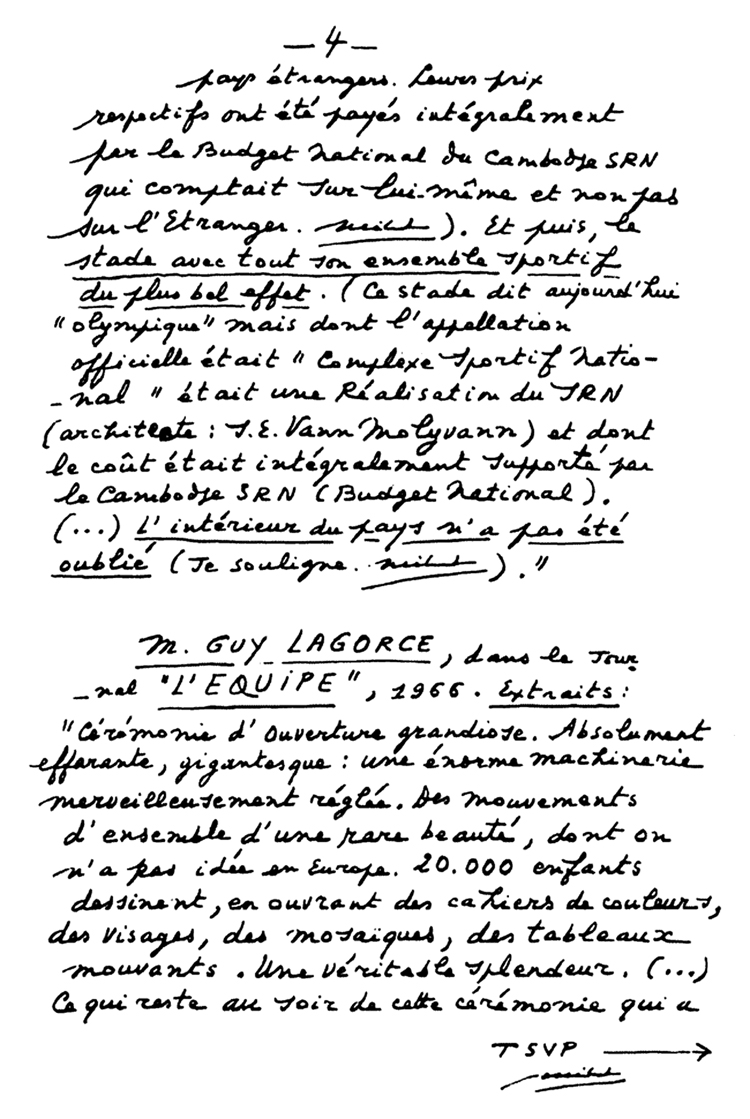 — 4 —
pays étrangers. Leurs prix
respectifs ont été payés intégralement
par le Budget National du Cambodge SRN
qui comptait sur lui-même et non pas
sur l'Etranger. ). Et puis, le
stade avec tout son ensemble sportif
du plus bel effet. (Ce stade dit aujourd'hui
"olympique" mais dont l'appellation
officielle était "Complexe Sportif Natio-
-nal" était une Réalisation du SRN
(architecte : S.E. Vann Molyvann) et dont
le coût était intégralement supporté par
le Cambodge SRN (Budget National).
(...) L'intérieur du pays n'a pas été
oublié (Je souligne. )."
M. GUY LAGORCE, dans le Jour
-nal "L'EQUIPE", 1966. Extraits :
"Cérémonie d'ouverture grandiose. Absolument
effarante, gigantesque : une énorme machinerie
merveilleusement réglée. Des mouvements
d'ensemble d'une rare beauté, dont on
n'a pas idée en Europe. 20.000 enfants
dessinent, en ouvrant des cahiers de couleurs,
des visages, des mosaïques, des tableaux
mouvants. Une véritable splendeur. (...)
Ce qui reste au soir de cette cérémonie qui a
TSVP →